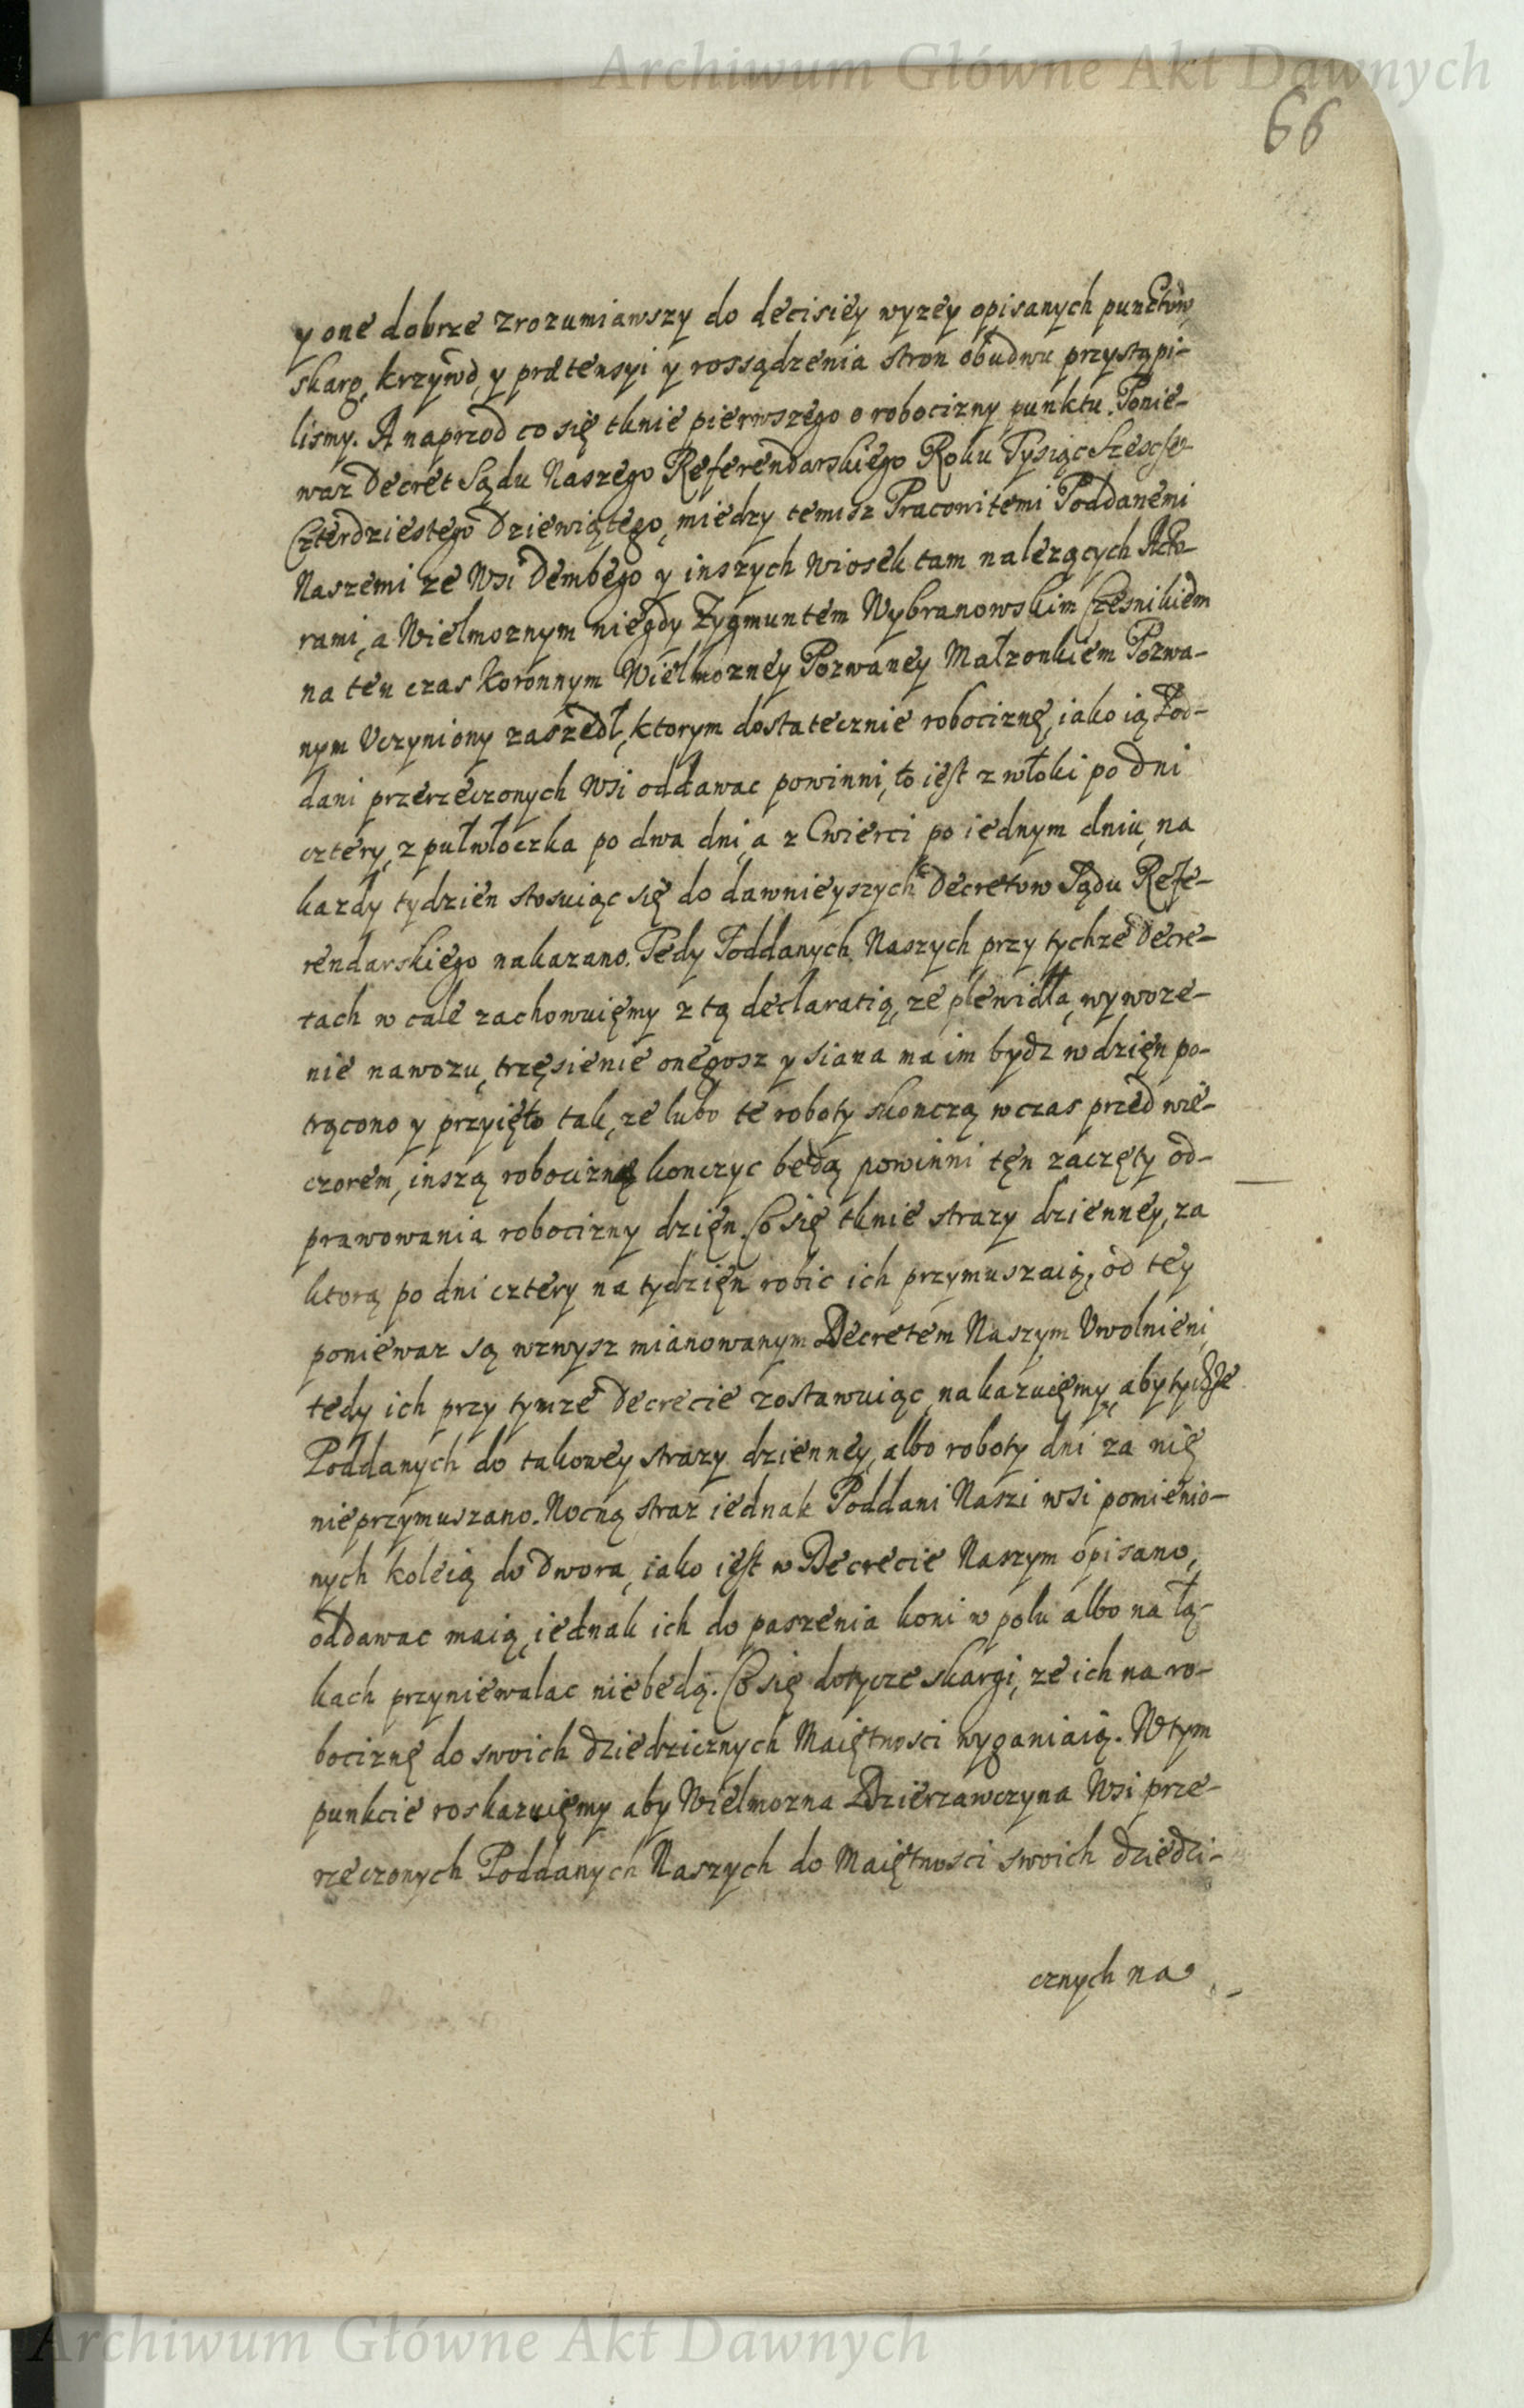 Archiwum Główne Akt Dawnych
66
y one dobrze zrozumiawszy do decisiey wyzey opisanych punctow
skarg, krzywd, y prætensyi y rossądzenia stron obudwu przystąpi-
lismy. A naprzod co się tknie pierwszego o robocizny punktu. Ponie-
waz Decret Sądu Naszego Referendarskiego Roku Tysiąc Szescset
Czterdziestego Dziewiątego, miedzy temisz Pracowitemi Poddanemi
Naszemi ze Wsi Dembego y inszych Wiosek tam nalezących Acto-
rami, a Wielmoznym niegdy Zygmuntem Wybranowskim Czesnikiem
na ten czas Koronnym Wielmozney Pozwaney Małzonkiem Pozwa-
nym Uczyniony zaszedł, ktorym dostatecznie robociznę, iako ią Pod-
dani przerzeczonych Wsi oddawac powinni, to iest z włoki po dni
cztery, z pułwłoczka po dwa dni, a z Cwierci po iednym dniu, na
kazdy tydzien stosuiąc się do dawnieyszych Decretow Sądu Refe-
rendarskiego nakazano. Tedy Poddanych Naszych przy tychze Decre-
tach w cale zachowuięmy z tą declaratią, ze plewidła, wywoze-
nie nawozu, trzęsienie onegosz y siana ma im bydz w dzięn po-
trącono y przyięto tak, ze lubo te roboty skonczą w czas przed wie-
czorem, inszą robociznę konczyc będą powinni tęn zaczęty od-
prawowania robocizny dzięn. Co się tknie strazy dzienney, za
ktorą po dni cztery na tydzięn robic ich przymuszaią, od tey
poniewaz są wzwysz mianowanym Decretem Naszym Uwolnieni,
tedy ich przy tymze Decrecie zostawuiąc, nakazuięmy, aby tychze
Poddanych do takowey strazy dzienney, albo roboty dni za nię
nieprzymuszano. Nocną straz iednak Poddani Naszi wsi pomienio-
nych koleią do Dwora, iako iest w Decrecie Naszym opisano,
oddawac maią, iednak ich do paszenia koni w polu albo na łą-
kach przyniewalac niebędą. Co się dotycze skargi, ze ich na ro-
bociznę do swoich dziedzicznych Maiętnosci wyganiaią. W tym
punkcie roskazuięmy aby Wielmozna Dzierzawczyna Wsi prze-
rzeczonych Poddanych Naszych do Maiętnosci swoich dziedzi-
cznych na
Archiwum Główne Akt Dawnych